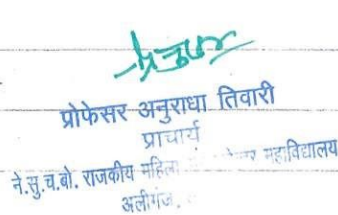 प्रोफेसर अनुराधा तिवारी
प्राचार्य
ने.सु.च.बो. राजकीय महिला महाविद्यालय
अलीगंज,